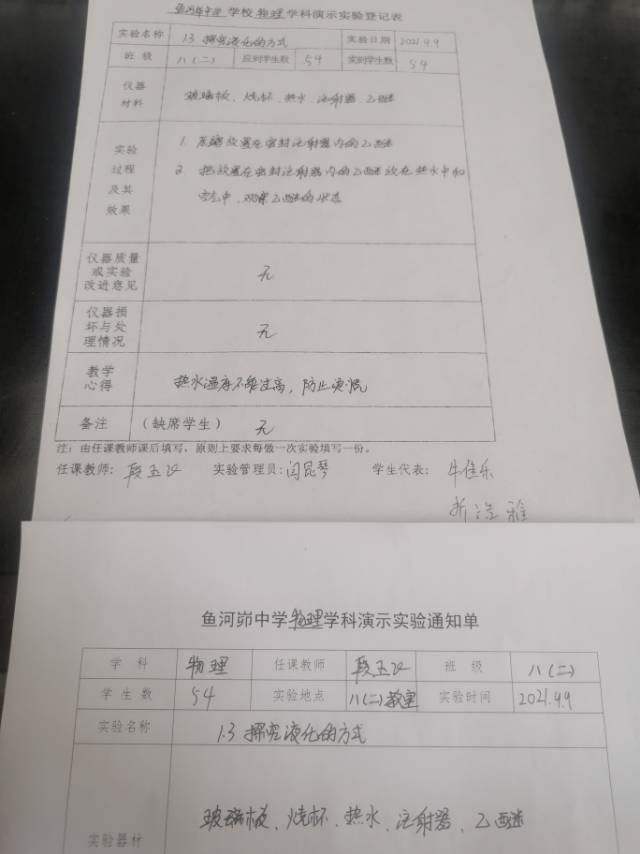 鱼河峁中学 学校 物理 学科演示实验登记表
实验名称 1.3 探究液化的方式 实验日期 2021.9.9
班级 八(二) 应到学生数 54 实到学生数 54
仪器
材料
玻璃板、烧杯、热水、注射器、乙醚
实验
过程
及其
效果
1. 压缩放置在密封注射器内的乙醚
2. 把放置在密封注射器内的乙醚放在热水中和
空气中,观察乙醚的状态
仪器质量
或实验
改进意见
无
仪器损
坏与处
理情况
无
教学
心得
热水温度不能过高,防止烫
备注 (缺席学生) 无
注:由任课教师课后填写,原则上要求每做一次实验填写一份。
任课教师: 段玉 实验管理员: 闫昆琴 学生代表: 牛佳乐
折 雅
鱼河峁中学物理学科演示实验通知单
学科 物理 任课教师 段玉 班级 八(二)
学生数 54 实验地点 八(二)教室 实验时间 2021.9.9
实验名称 1.3 探究液化的方式
实验器材
玻璃板、烧杯、热水、注射器、乙醚